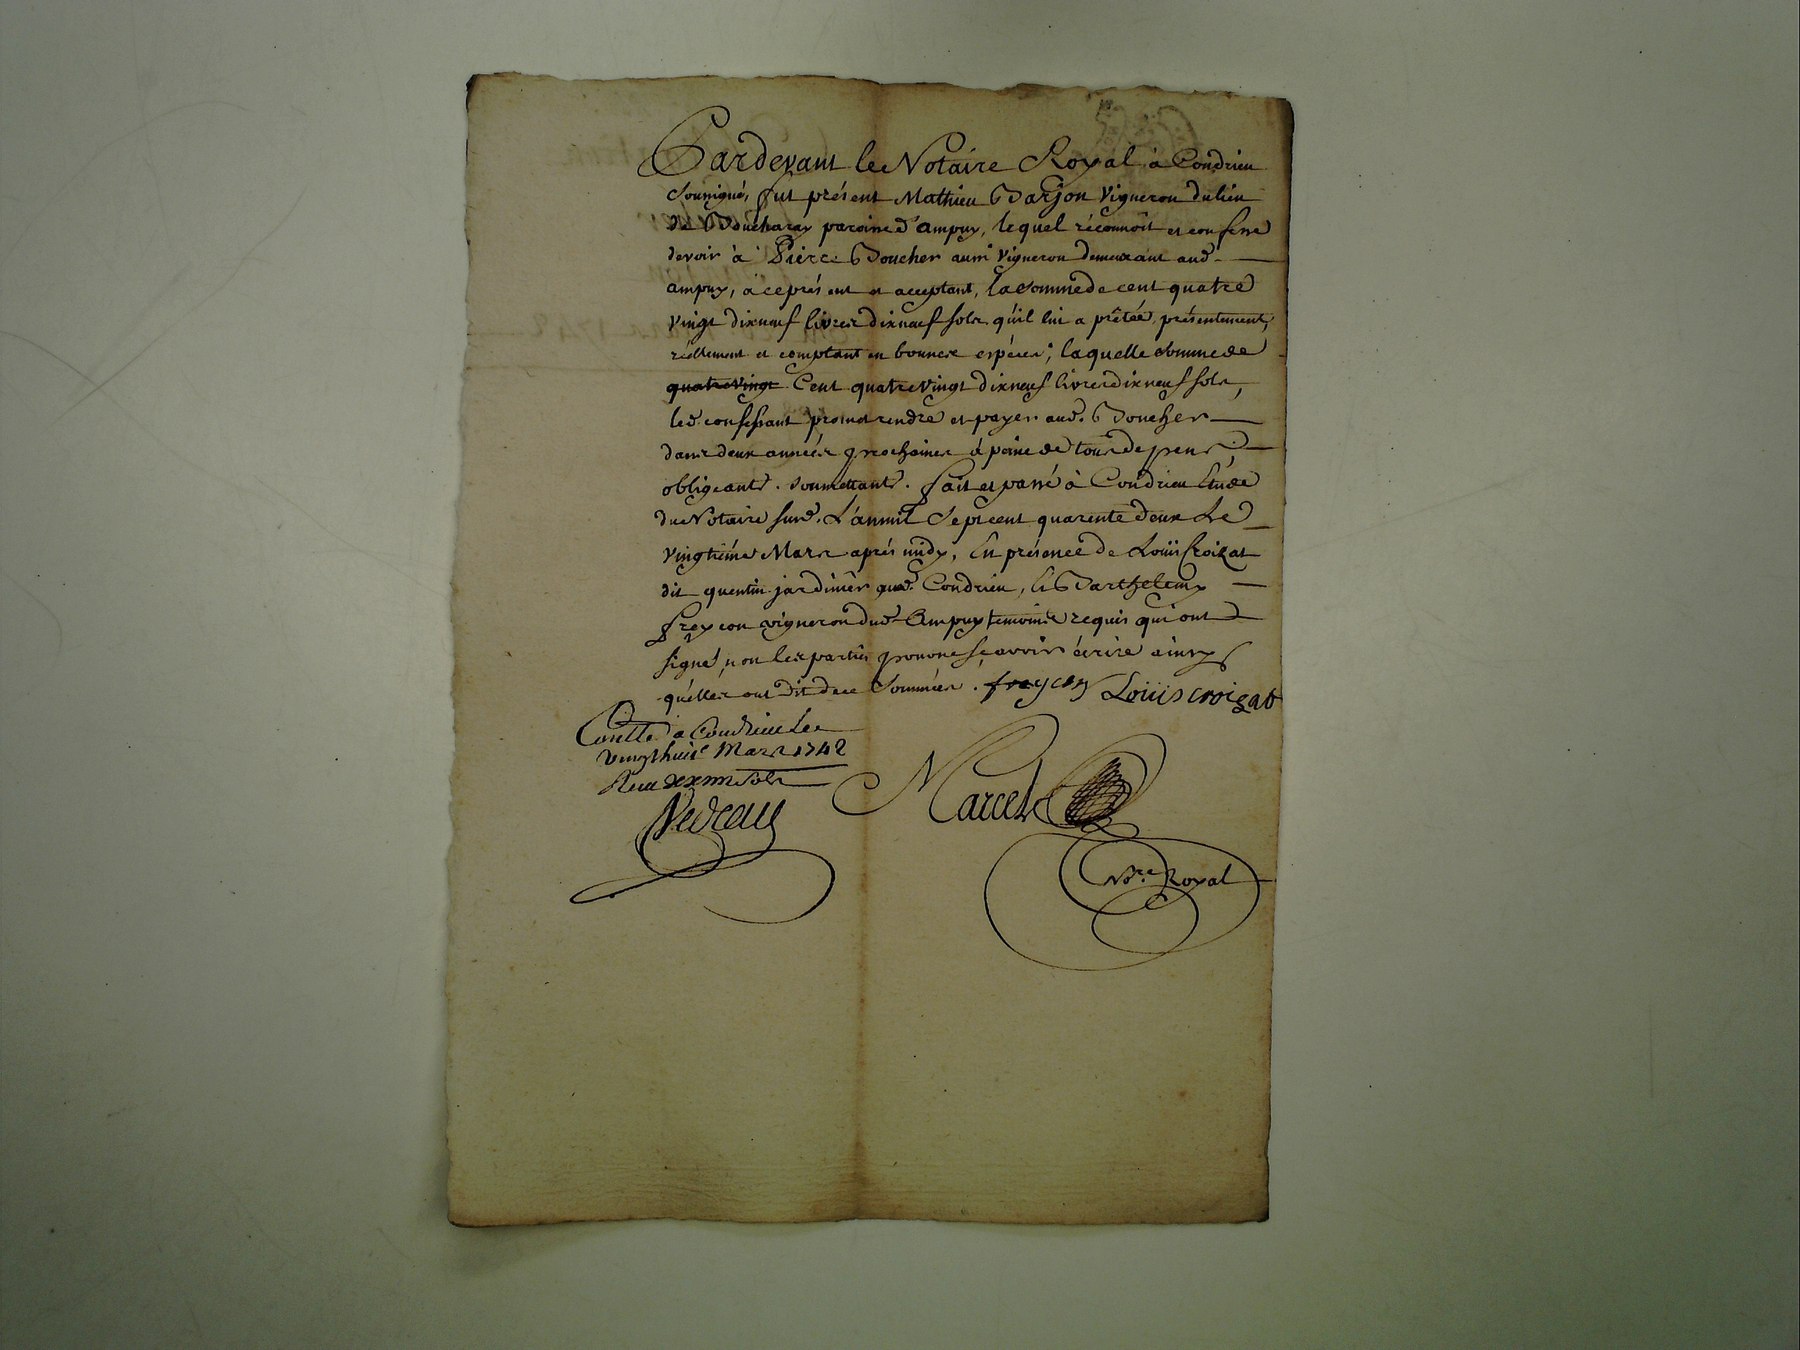 Pardevant le Notaire Royal à Condrieu
Soussigné, fut présent Mathieu Barjon Vigneron du lieu
de Boucharay paroisse d'ampuy, lequel réconnoît et confesse
devoir à Pierre Boucher aussi Vigneron demeurant aud.
ampuy, à ce présent et acceptant, la somme de cent quatre
vingt dixneuf livres dixneuf sols qu'il lui a prêtée, présentement,
réellement et comptant en bonnes espéces; laquelle somme de
quatrevingt Cent quatrevingt dixneuf livres dixneuf sols,
led. confessant promet rendre et payer aud. Boucher
dans deux années prochaines à peine de tous depens
obligeants. soumettants. fait et passé à Condrieu Etude
du Notaire susd. L'an mil Sept cent quarente deux Le
vingtiéme Mars aprés midy, En présence de Loüis Croizat
dit quentin jardinier aud. Condrieu, & Barthelemy
freycon vigneron dud. Ampuy temoins requis qui ont
signé, non les parties pour ne sçavoir écrire ainsy
qu'elles ont dit de ce Sommées. freycon Loüis croizat
Conllé a Condrieu Le
vingthuit Mars 1742
Reçu sols
Nedeau
Marcel
Nore. Royal